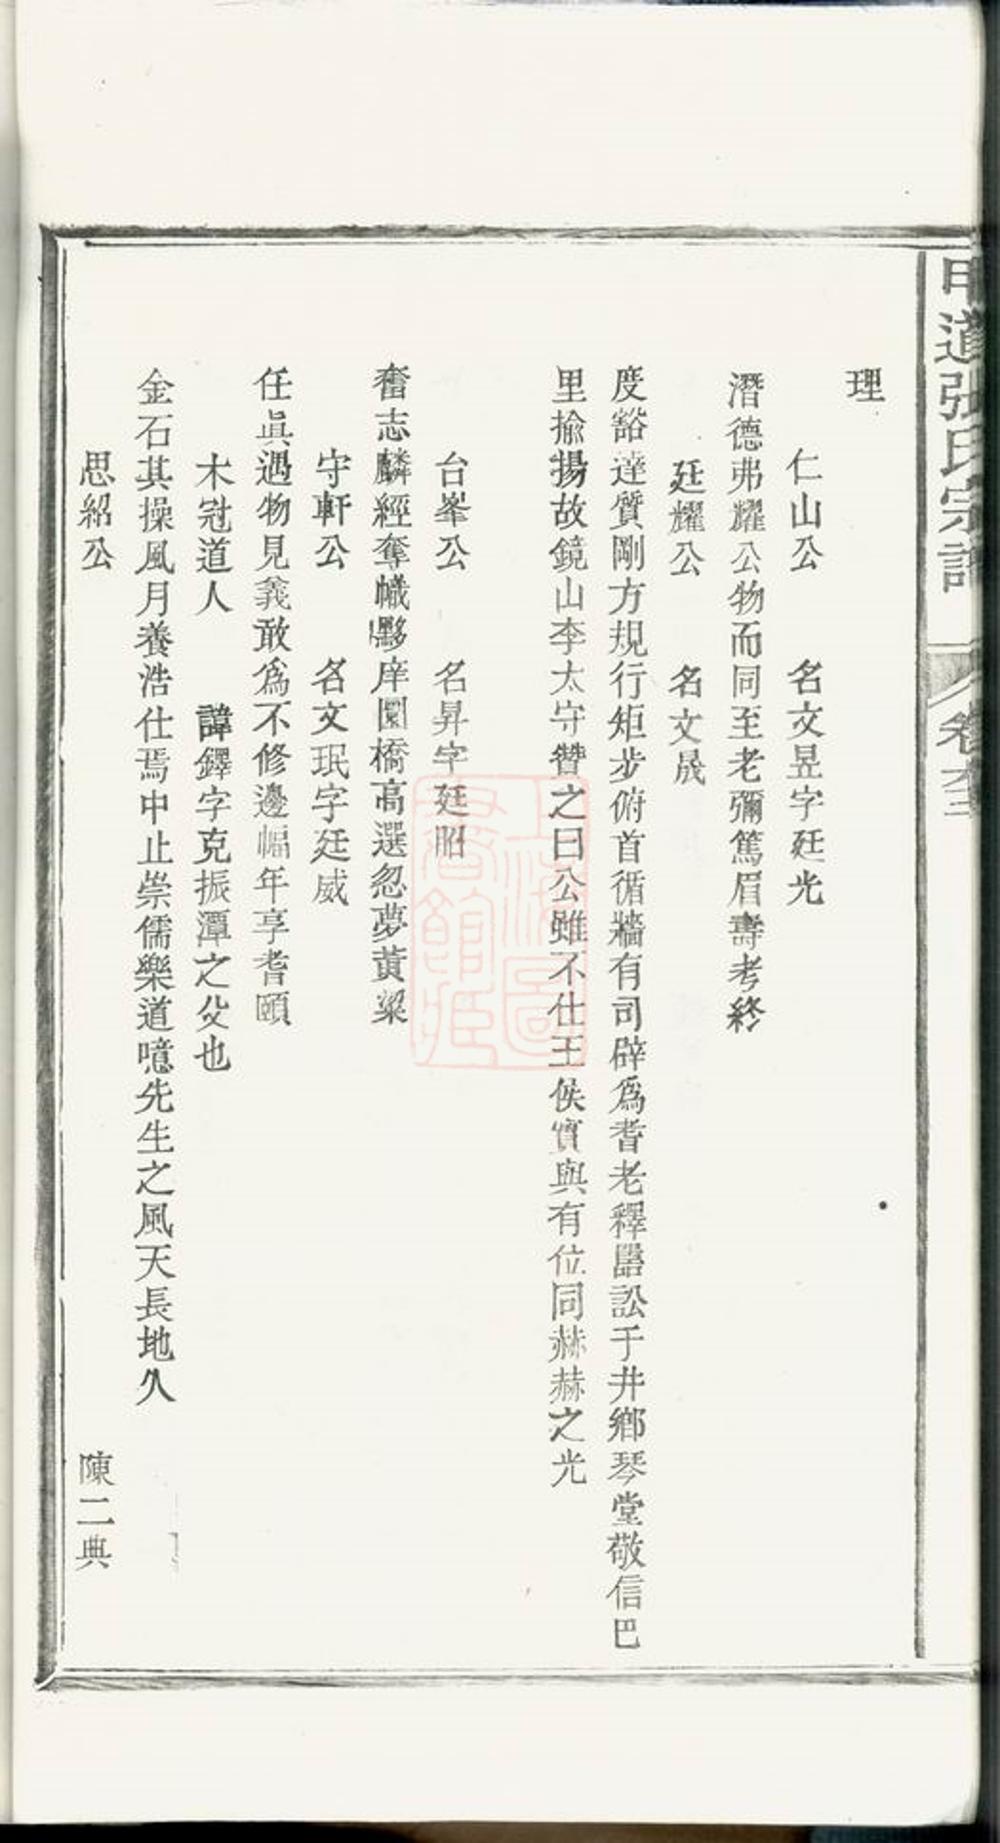 甲道張氏宗譜 卷六十二
理
仁山公 名文昱字廷光
潛德弗耀公物而同至老彌篤眉壽考終
廷耀公 名文晟
度豁達質剛方規行矩步俯首循牆有司辟爲耆老釋嚚訟于井鄉琴堂敬信巴
里揄揚故鏡山李太守贊之曰公雖不仕王侯實與有位同赫赫之光
台峯公 名昇字廷昭
奮志麟經奪幟黟庠圜橋高選忽夢黃粱
守軒公 名文珉字廷威
任眞遇物見義敢爲不修邊幅年享耆頤
木冠道人 諱鐸字克振潭之父也
金石其操風月養浩仕焉中止崇儒樂道噫先生之風天長地久
思紹公 陳二典
上海圖書館藏